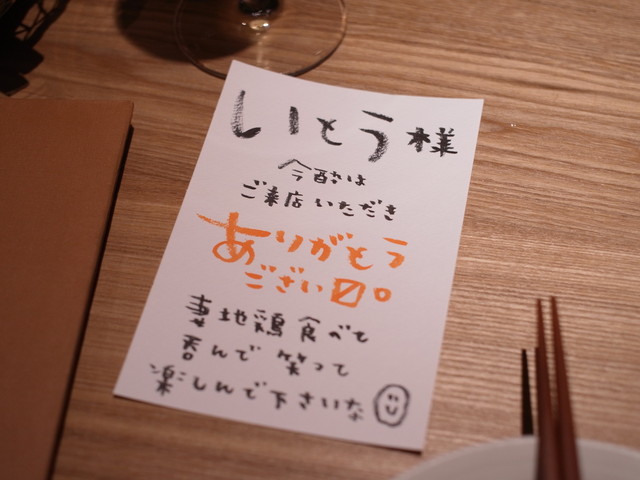 いとう様
今酔は
ご来店いただき
ありがとう
ござい〼。
妻地鶏食べて
呑んで笑って
楽しんで下さいな